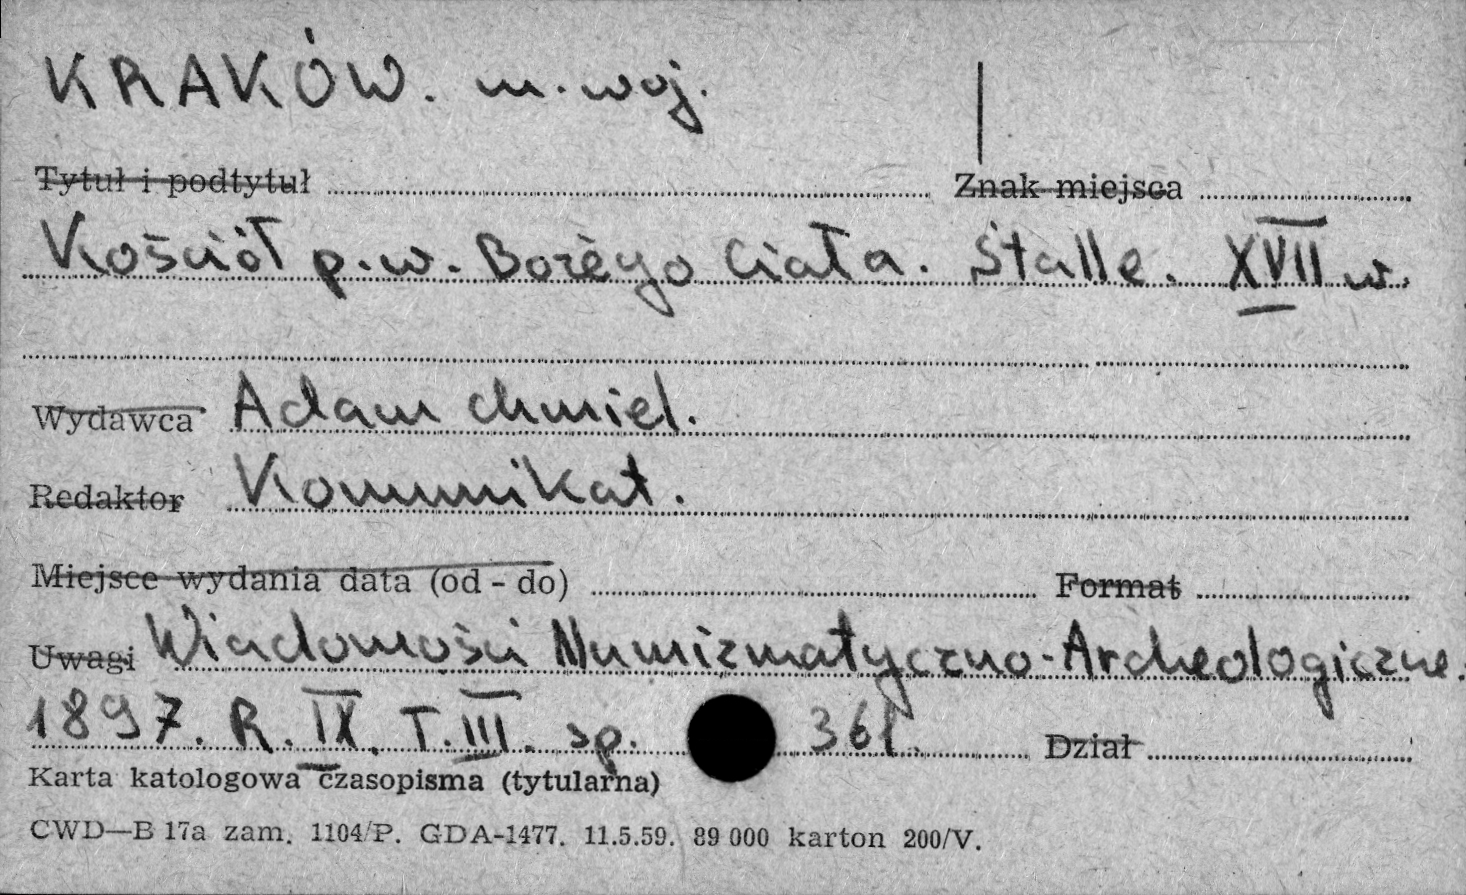 KRAKÓW. m. woj.
Tytuł i podtytuł Znak miejsca
Kościół p.w. Bożego Ciała. Stalle. XVII w.
Wydawca Adam Chmiel.
Redaktor Komunikat.
Miejsce wydania data (od - do) Format
Uwagi Wiadomości Numizmatyczno-Archeologiczne.
1897. R. IX. T. III. sp. 361. Dział
Karta katologowa czasopisma (tytularna)
CWD—B 17a zam. 1104/P. GDA-1477. 11.5.59. 89 000 karton 200/V.